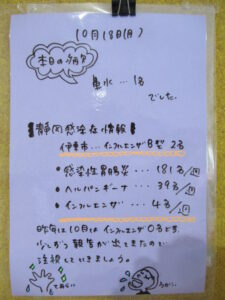 10月18日(月)
本日の病気
鼻水…1名
でした
静岡感染症情報
伊東市…インフルエンザB型 2名
•感染性胃腸炎…181名/週
•ヘルパンギーナ…39名/週
•インフルエンザ…4名/週
昨年は10月はインフルエンザ0名です。
少しずつ報告が出てきたので
注視していきましょう。
てあらい
うがい